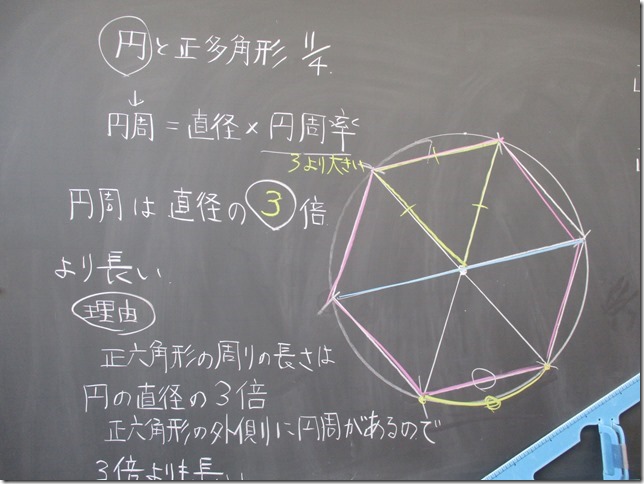 円と正多角形 11/4
円周=直径×円周率
3より大きい
円周は直径の3倍
より長い
理由
正六角形の周りの長さは
円の直径の3倍
正六角形の外側に円周があるので
3倍よりも長い